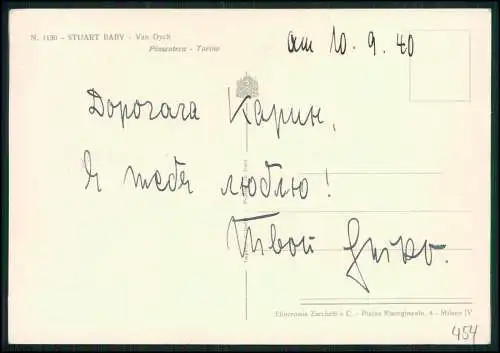 N. 1130 - STUART BABY - Van Dych
Pinacoteca - Torino
am 10. 9. 40
Дорогая Карин,
Я тебя люблю!
Твой
Eliocromia Zacchetti & C. - Piazza Risorgimento, 4 - Milano IV
454